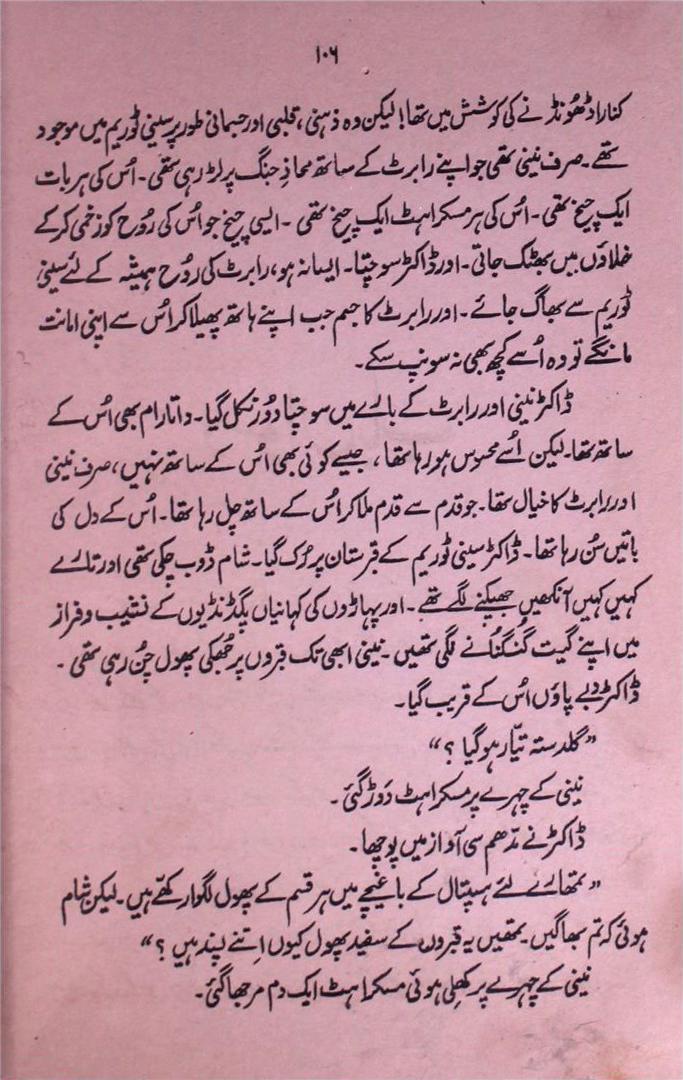 ۱۰۶
کنارا ڈھونڈنے کی کوشش میں تھا! لیکن وہ ذہنی، قلبی اور جسمانی طور پر سینی ٹوریم میں موجود
تھے۔ صرف نینی تھی جو اپنے رابرٹ کے ساتھ محاذِ جنگ پر لڑ رہی تھی۔ اُس کی ہر بات
ایک چیخ تھی۔ اُس کی ہر مسکراہٹ ایک چیخ تھی۔ ایسی چیخ جو اُس کی رُوح کو زخمی کر کے
خلاؤں میں بھٹک جاتی۔ اور ڈاکٹر سوچتا۔ ایسا نہ ہو، رابرٹ کی رُوح ہمیشہ کے لئے سینی
ٹوریم سے بھاگ جائے۔ اور رابرٹ کا جسم جب اپنے ہاتھ پھیلا کر اُس سے اپنی امانت
مانگے تو وہ اُسے کچھ بھی نہ سونپ سکے۔
ڈاکٹر نینی اور رابرٹ کے بارے میں سوچتا دُور نکل گیا۔ داتا رام بھی اُس کے
ساتھ تھا۔ لیکن اُسے محسوس ہو رہا تھا، جیسے کوئی بھی اس کے ساتھ نہیں، صرف نینی
اور رابرٹ کا خیال تھا۔ جو قدم سے قدم ملا کر اُس کے ساتھ چل رہا تھا۔ اُس کے دل کی
باتیں سُن رہا تھا۔ ڈاکٹر سینی ٹوریم کے قبرستان پر رُک گیا۔ شام ڈوب چکی تھی اور تارے
کہیں کہیں آنکھیں جھپکنے لگے تھے۔ اور پہاڑوں کی کہانیاں پگڈنڈیوں کے نشیب و فراز
میں اپنے گیت گُنگُنانے لگی تھیں۔ نینی ابھی تک قبروں پر جُھکی پھول چُن رہی تھی۔
ڈاکٹر دبے پاؤں اُس کے قریب گیا۔
”گلدستہ تیّار ہو گیا ؟“
نینی کے چہرے پر مسکراہٹ دَوڑ گئی۔
ڈاکٹر نے مدّھم سی آواز میں پوچھا۔
”تمھارے لئے ہسپتال کے باغیچے میں ہر قسم کے پھول لگوا رکھے ہیں۔ لیکن شام
ہوئی کہ تم بھاگیں۔ تمھیں یہ قبروں کے سفید پھول کیوں اِتنے پسند ہیں ؟“
نینی کے چہرے پر کھِلی ہوئی مسکراہٹ ایک دم مرجھا گئی۔